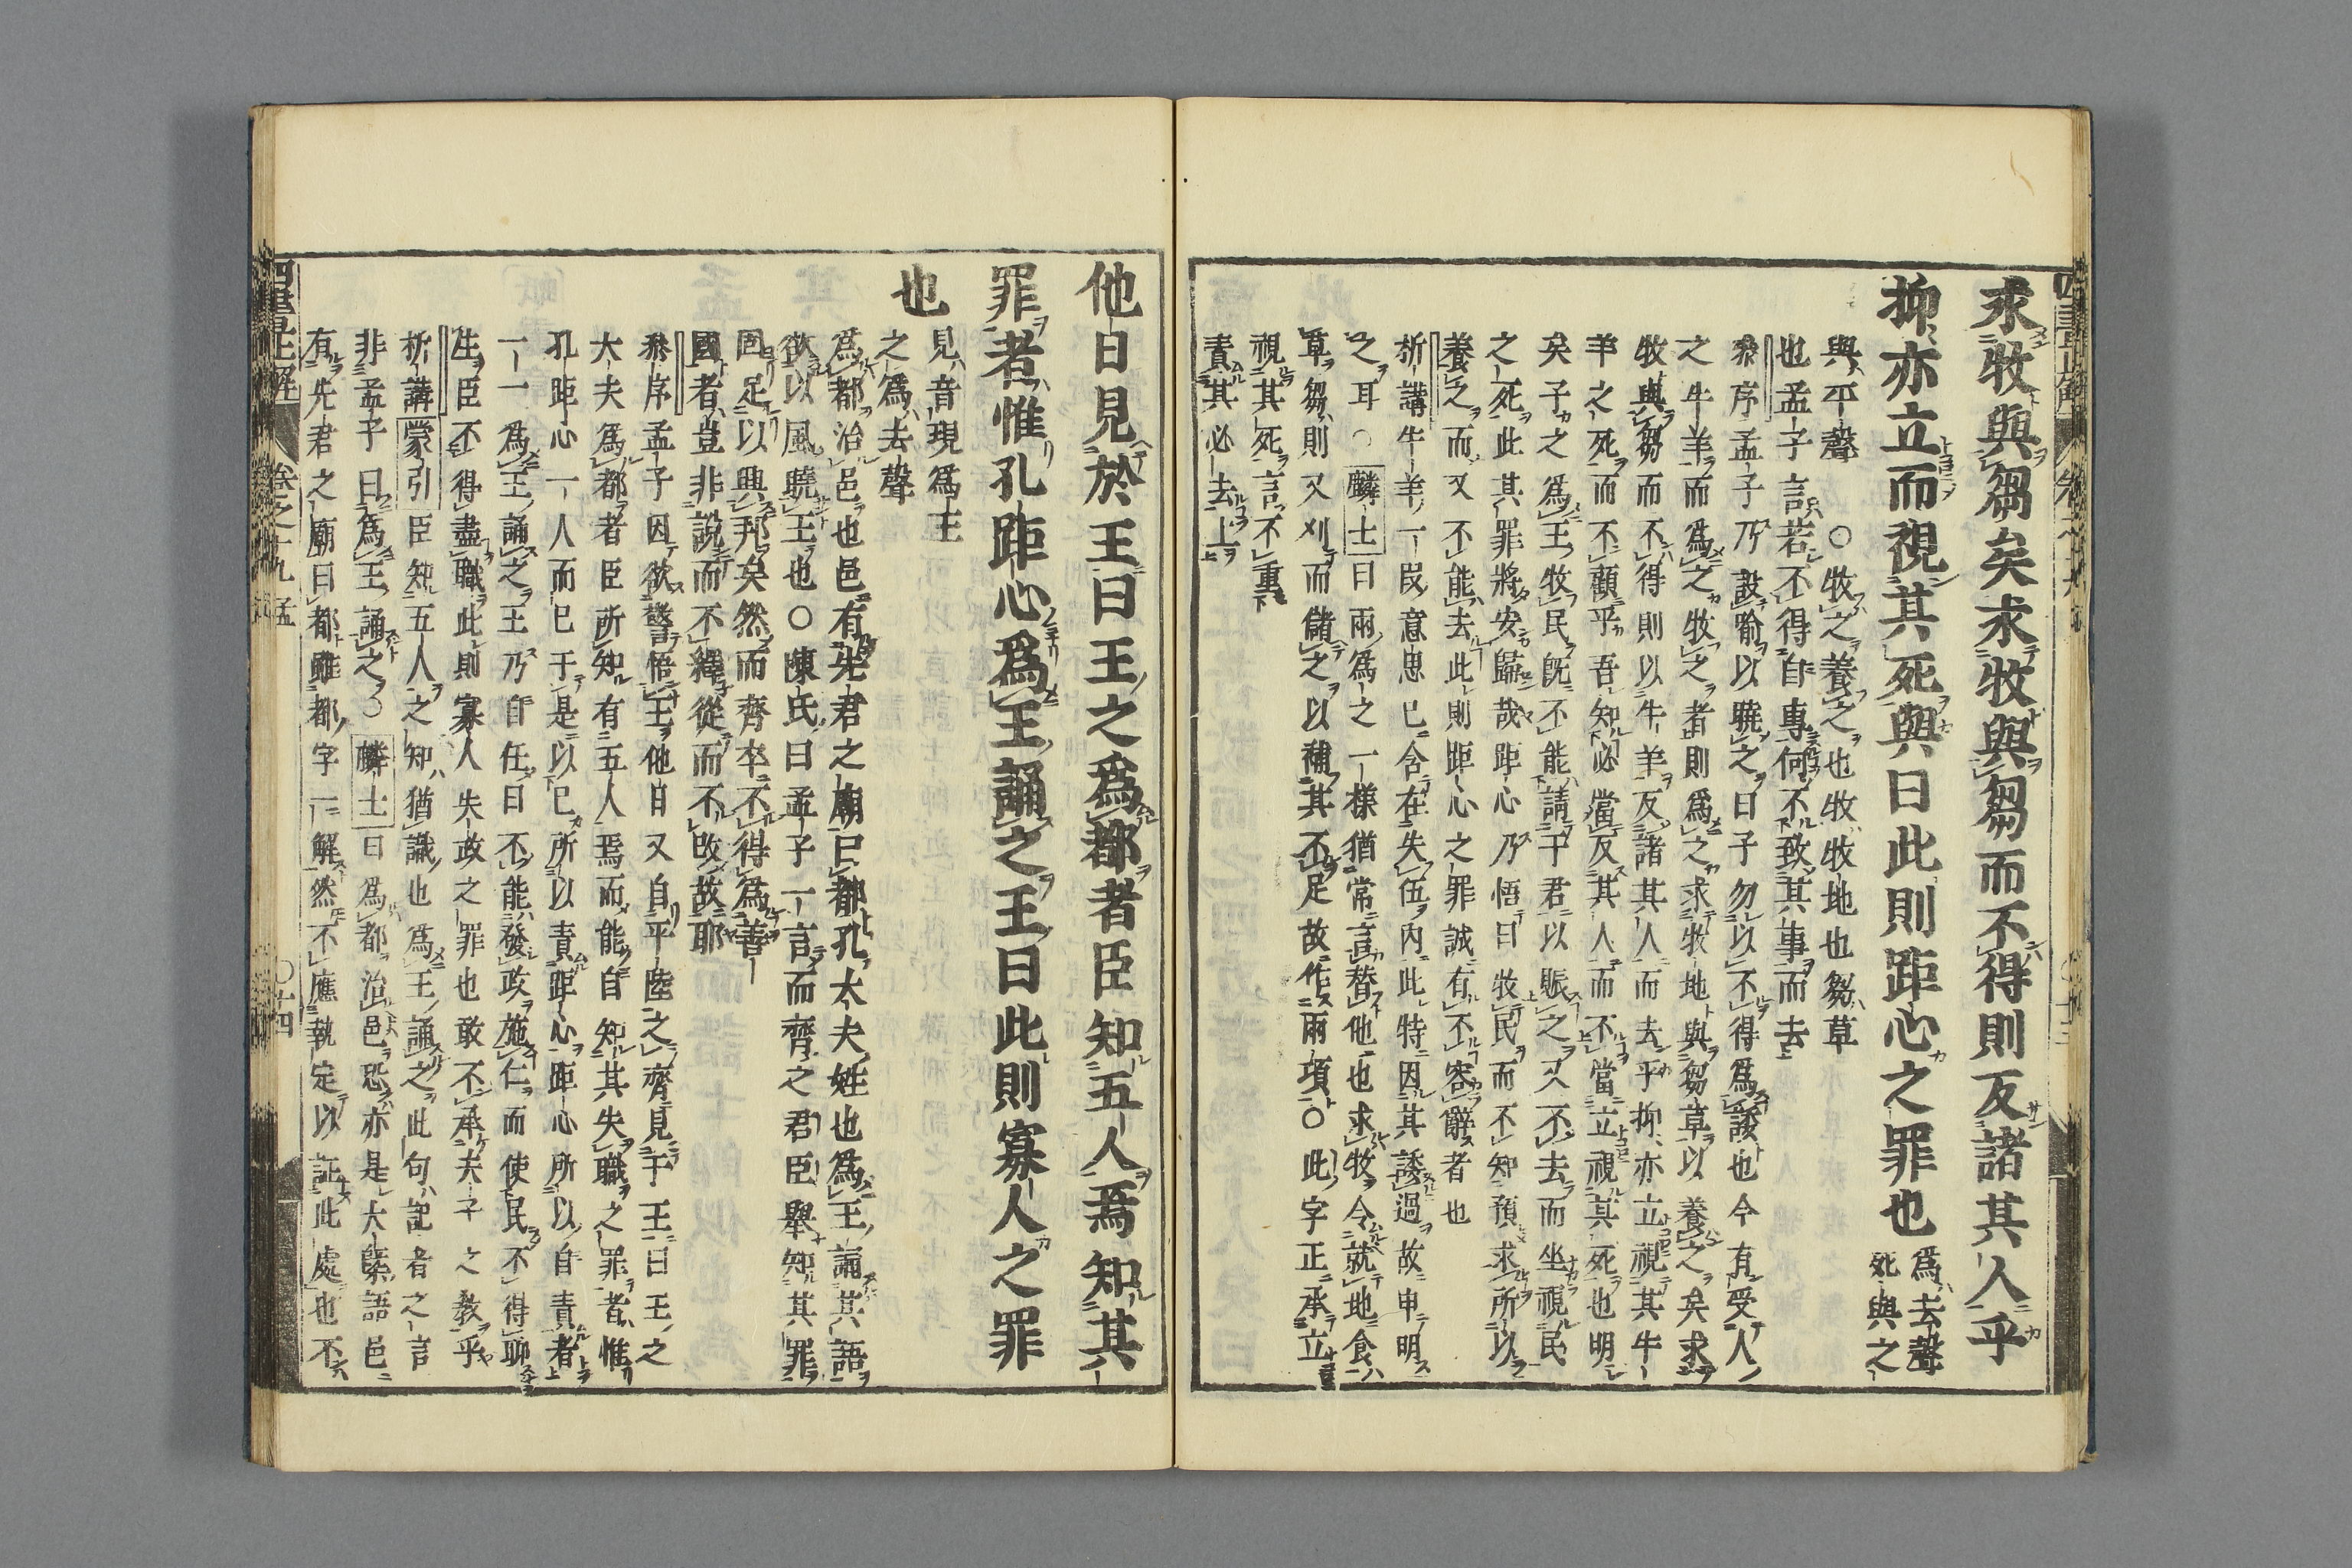 求牧與芻矣求牧與芻而不得則反諸其人乎
抑亦立而視其死與曰此則距心之罪也
爲去聲
死與之
與平聲○牧之養之也牧牧地也芻草
也孟子言若不得自專何不致其事而去
叅序孟子乃設喻以曉之曰子勿以不得爲諉也今有受人
之牛羊而爲之牧之者則爲之求牧地與芻草以養之矣求
牧與芻而不得則以牛羊反諸其人而去乎抑亦立視其牛
羊之死而不顧乎吾知必當反其人而不當立視其死也明
矣子之爲王牧民旣不能請于君以賑之又不去而坐視民
之死此其罪將安歸哉距心乃悟曰牧民而不知預求所以
養之而又不能去此則距心之罪誠有不容辭者也
析講牛羊一段意思已含在失伍內此特因其諉過故申明
之耳○麟士曰兩爲之一樣猶常言替他也求牧令就地食
草芻則又刈而儲之以補其不足故作兩項○此字正承立
視其死言不重
責其必去上
他日見於王曰王之爲都者臣知五人焉知其
罪者惟孔距心爲王誦之王曰此則寡人之罪
也
見音現爲王
之爲去聲
爲都治邑也邑有先君之廟曰都孔大夫姓也爲王誦其語
欲以風曉王也○陳氏曰孟子一言而齊之君臣舉知其罪
固足以興邦矣然而齊卒不得爲善
國者豈非說而不繹從而不改故耶
叅序孟子因欲警悟王他日又自平陸之齊見于王曰王之
大夫爲都者臣所知有五人焉而能自知其失職之罪者惟
孔距心一人而已于是以已所以責距心距心所以自責者
一一爲王誦之王乃自任曰不能發政施仁而使民不得聊
生臣不得盡職此則寡人失政之罪也敢不承夫子之教乎
析講蒙引臣知五人之知猶識也爲王誦之此句記者之言
非孟子曰爲王誦之○麟士曰爲都治邑恐亦是大槩語邑
有先君之廟曰都雖都字一解然不應執定以証此處也不